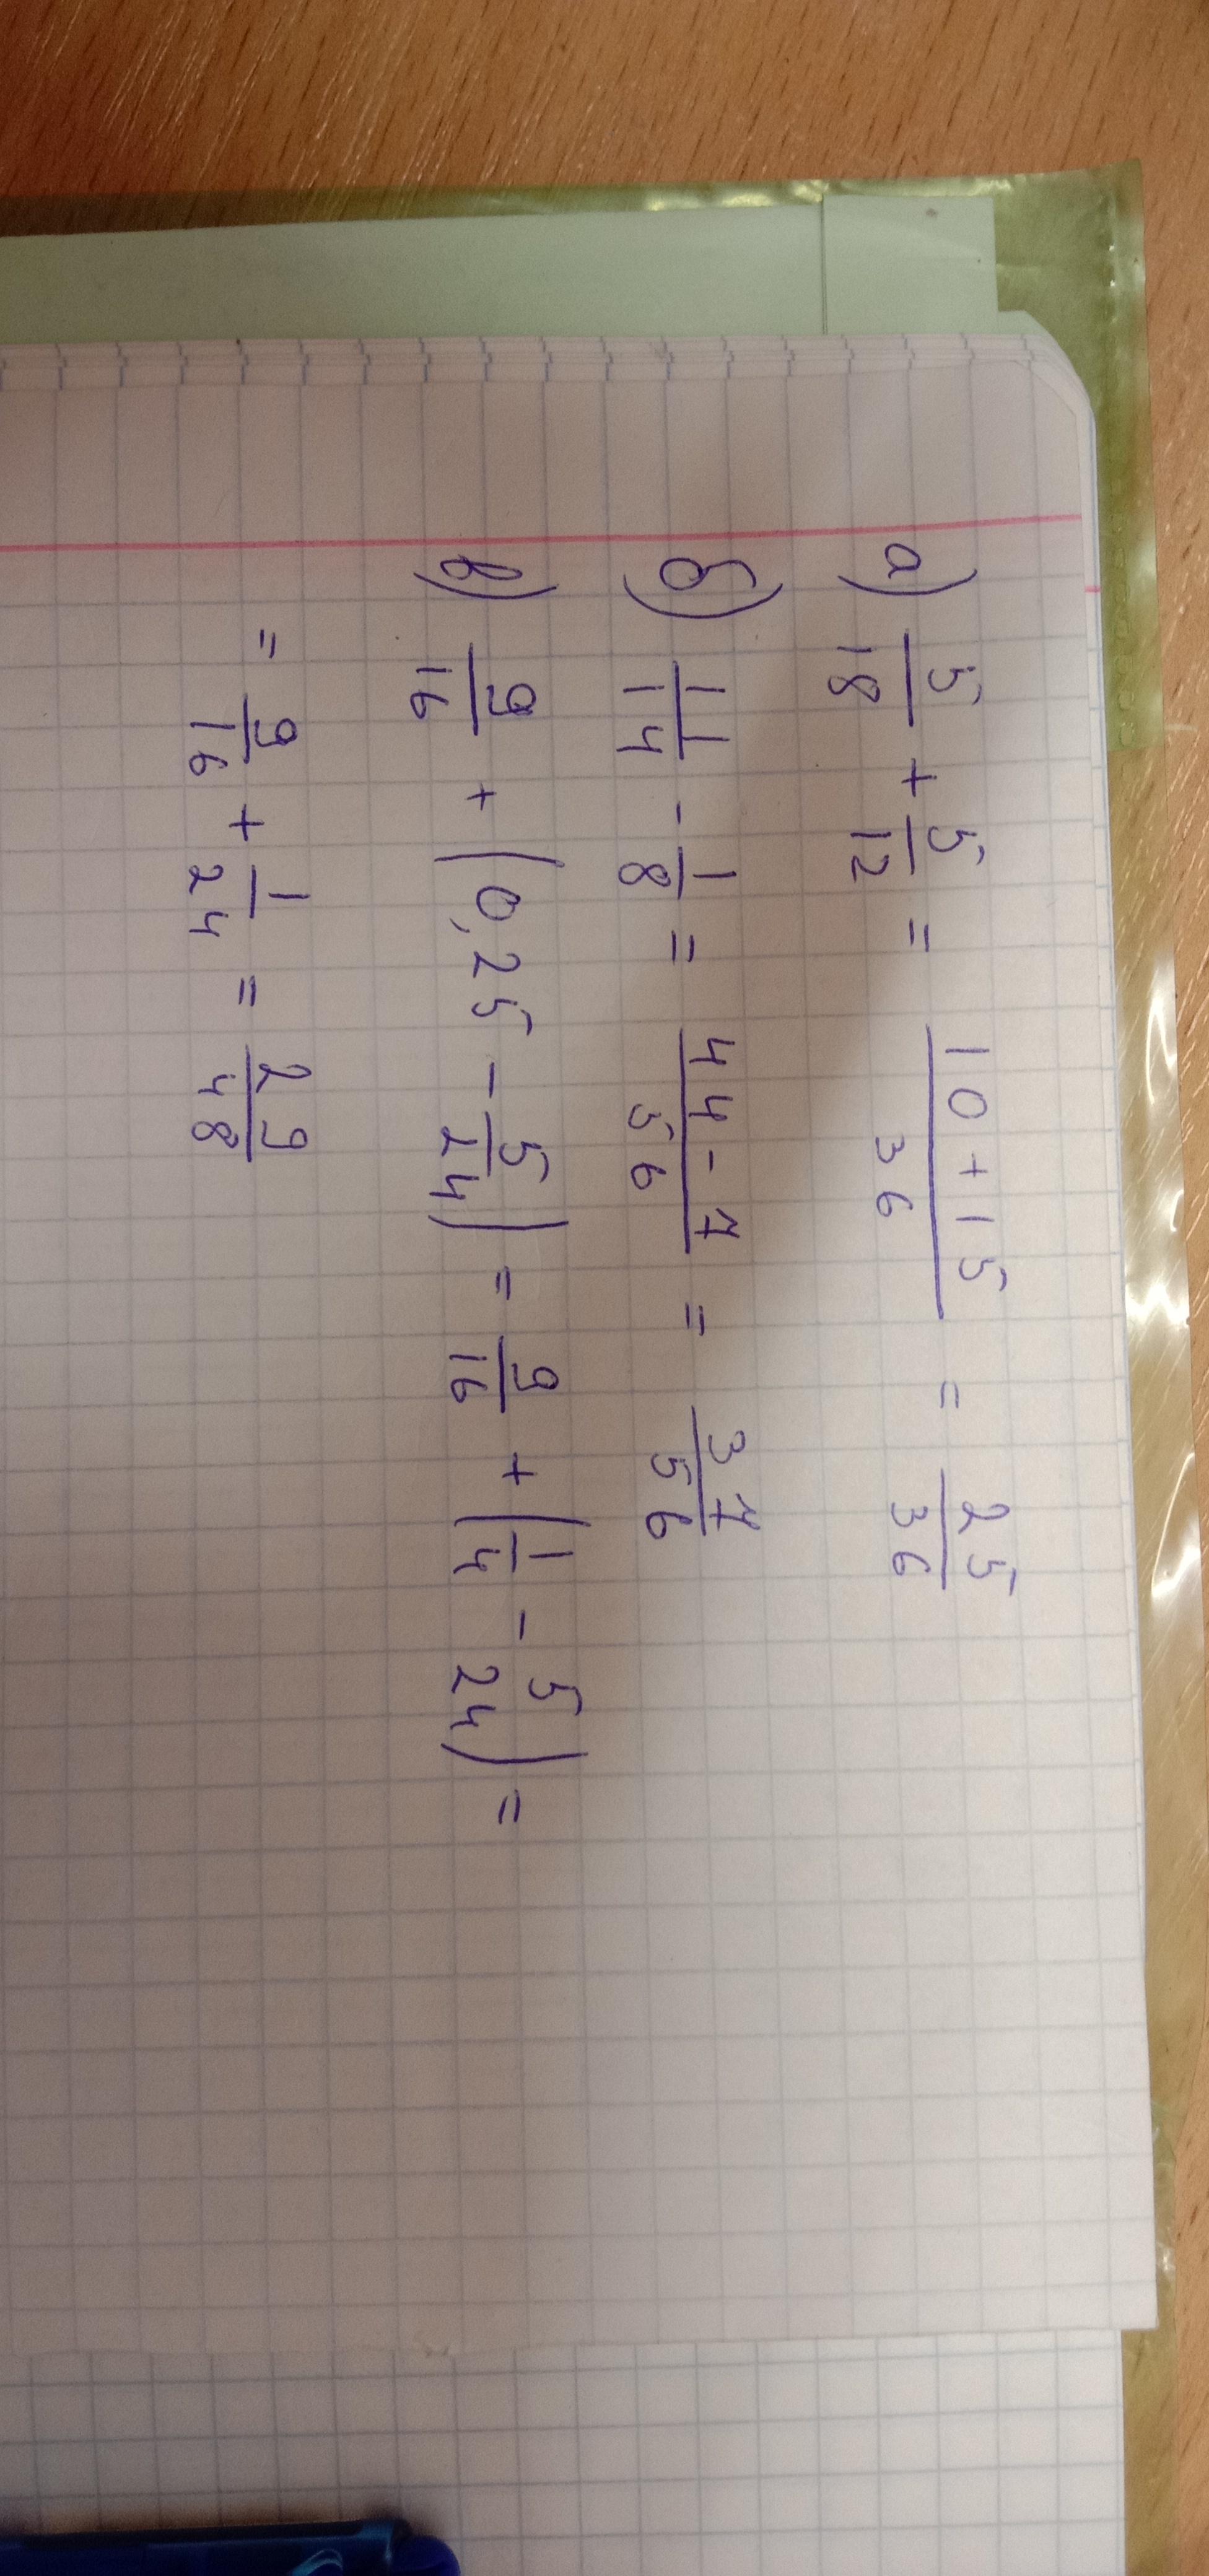 а) 5/18 + 5/12 = (10+15)/36 = 25/36
б) 11/14 - 1/8 = (44-7)/56 = 37/56
в) 9/16 + (0,25 - 5/24) = 9/16 + (1/4 - 5/24) =
= 9/16 + 1/24 = 29/48